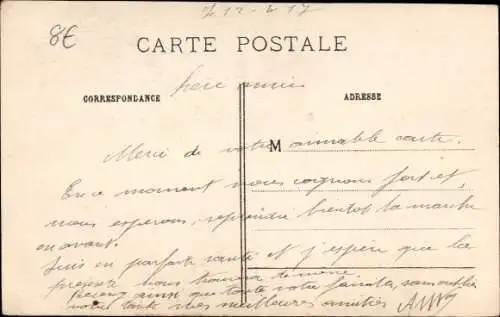 8€
CARTE POSTALE
CORRESPONDANCE
ADRESSE
M
Merci de votre aimable carte.
En ce moment nous cognons fort et,
nous esperons, reprendre bientot la marche
en avant.
Suis en parfaite santé et j'espère que la
présente vous trouvera de même.
ainsi que toute votre famille, sans oublier
mes meilleures amitiés